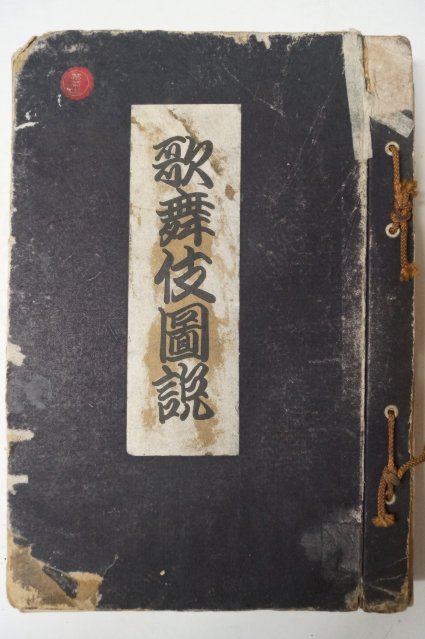 歌舞伎圖説